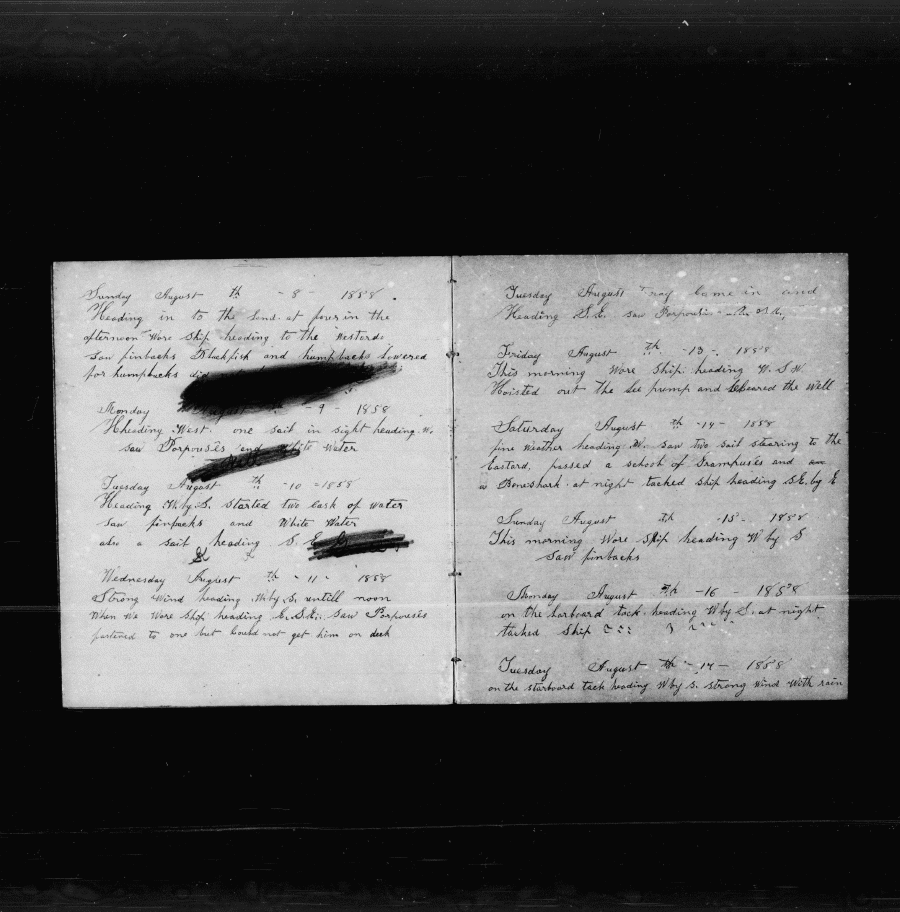 Sunday August th - 8 - 1858.
Heading in to the land. at four in the
afternoon Wore Ship heading to the Westard
saw finbacks Blackfish and humpbacks Lowered
for humpbacks
Monday August - 9 - 1858
Hheading West. one sail in sight heading W.
saw Porpouses and White Water
Tuesday August th - 10 - 1858
Heading W by S. started two cask of water
saw finbacks and White Water
also a sail heading S. E
Wednesday August th - 11 - 1858
Strong Wind heading W by S. untill noon
When We Wore Ship heading E.S.E. saw Porpouses
fastened to one but Could not get him on deck
Tuesday August came in and
Heading S.E. saw
Friday August th - 13 - 1858
This morning Wore Ship heading W. S W.
Hoisted out the lee pump and Cleared the Well
Saturday August th - 14 - 1858
fine Weather heading W. saw two sail stearing to the
Eastard, passed a school of Grampuses and
a Boneshark. at night tacked Ship heading S E. by E
Sunday August th - 15 - 1858
This morning Wore Ship heading W by S
saw finbacks
Monday August th - 16 - 1858
on the larboard tack heading W by S. at night
tacked Ship
Tuesday August th - 17 - 1858
on the starboard tack heading W by S. strong Wind With rain